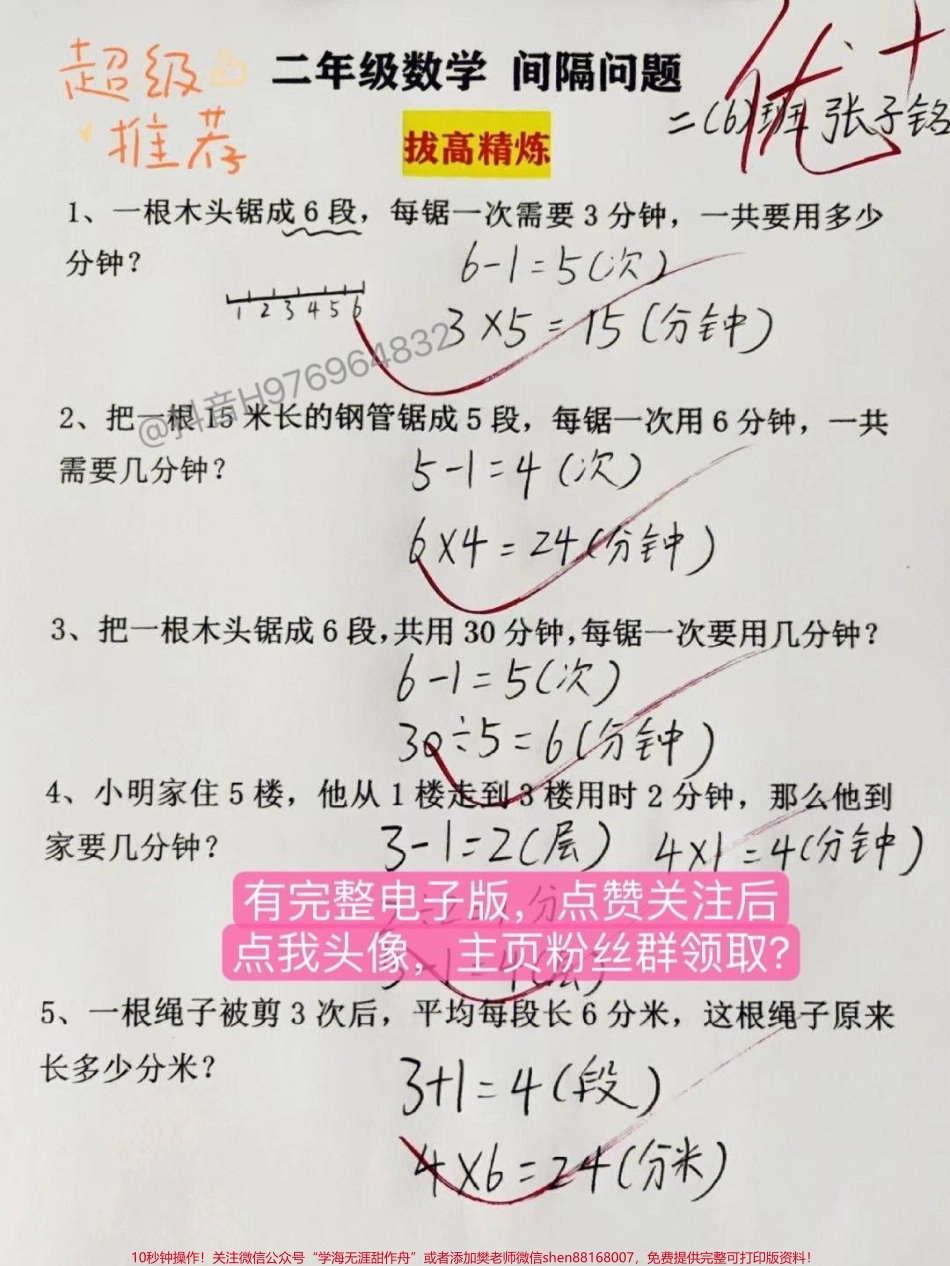 超级
推荐
二年级数学 间隔问题
优+
二(6)班 张子铭
拔高精炼
1、一根木头锯成6段，每锯一次需要3分钟，一共要用多少
分钟？
6-1=5(次)
1 2 3 4 5 6
3×5=15(分钟)
@抖音H976964832
2、把一根15米长的钢管锯成5段，每锯一次用6分钟，一共
需要几分钟？
5-1=4(次)
6×4=24(分钟)
3、把一根木头锯成6段,共用30分钟,每锯一次要用几分钟？
6-1=5(次)
30÷5=6(分钟)
4、小明家住5楼，他从1楼走到3楼用时2分钟，那么他到
家要几分钟？
3-1=2(层) 4×1=4(分钟)
有完整电子版，点赞关注后
点我头像，主页粉丝群领取?
5、一根绳子被剪3次后，平均每段长6分米，这根绳子原来
长多少分米？
3+1=4(段)
4×6=24(分米)
10秒钟操作！关注微信公众号“学海无涯甜作舟”或者添加樊老师微信shen88168007，免费提供完整可打印版资料！